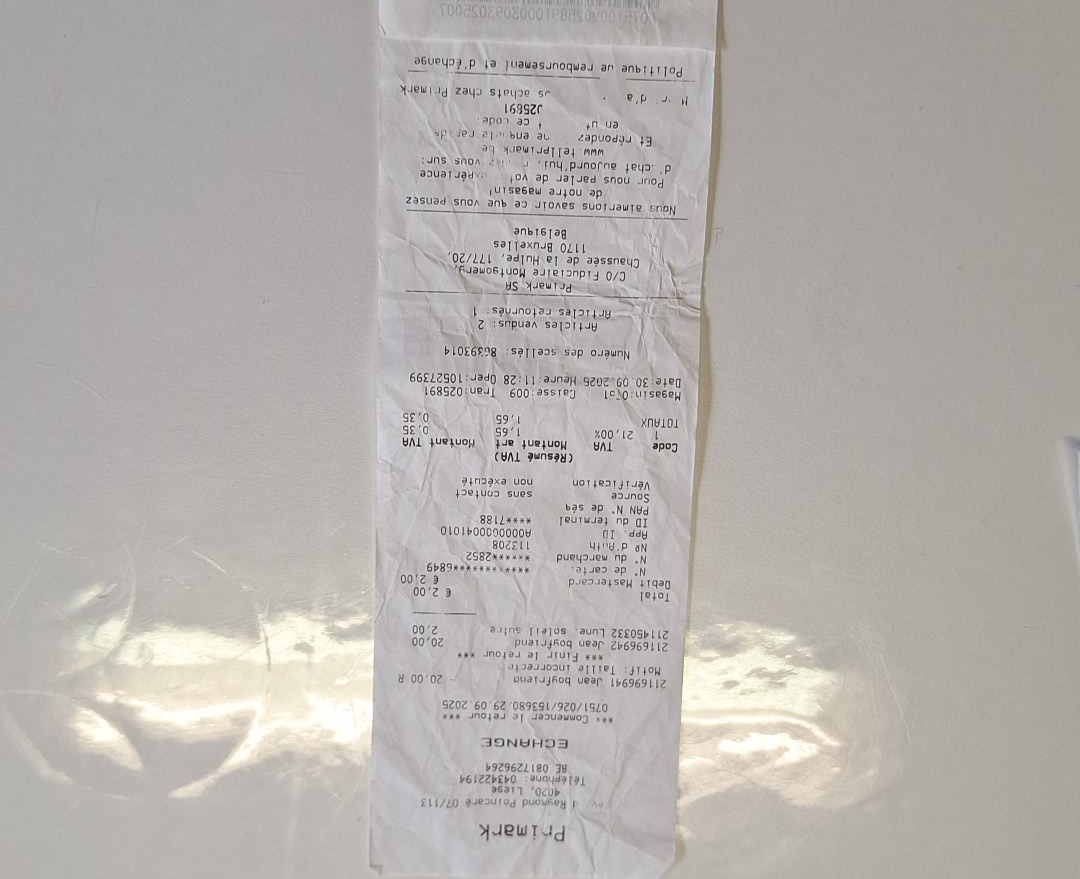 Primark
d Raymond Poincaré 07/113
4020, Liege
Téléphone: 043422194
BE 0817296264
ECHANGE
*** Commencer le retour ***
0751/026/153680/29.09.2025
211696941 Jean boyfriend - 20,00 R
Motif: Taille incorrecte
*** Finir le retour ***
211696942 Jean boyfriend 20,00
211450332 Lune. soleil autre 2,00
Total € 2,00
Debit Mastercard € 2,00
N° de carte. ************6849
N° du marchand ******2852
Nº d'Auth 113208
App. ID A0000000041010
ID du terminal ****7188
PAN N° de séq
Source sans contact
Vérification non exécuté
(Résumé TVA)
Code TVA Montant art Montant TVA
1 21,00% 1,65 0,35
TOTAUX 1,65 0,35
Magasin:0751 Caisse:009 Tran:025891
Date:30.09.2025 Heure:11:28 Oper:10527399
Numéro des scellés: 86393014
Articles vendus: 2
Articles retournés: 1
Primark SA
C/O Fiduciaire Montgomery,
Chaussée de la Hulpe, 177/20,
1170 Bruxelles
Belgique
Nous aimerions savoir ce que vous pensez
de notre magasin!
Pour nous parler de expérience
d'achat aujourd'hui, vous sur:
www.tellprimark.be
Et répondez
en ce code:
J25891
d'a achats chez Primark
Politique de remboursement et d'échange